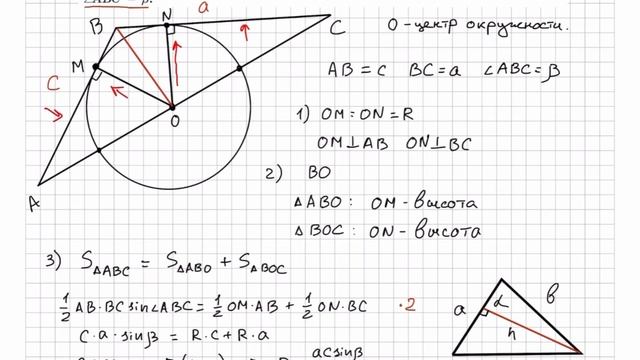 ∠ABC = β.
a
B
N
C
M
C
O
A
O-центр окружности.
AB = c   BC = a   ∠ABC = β
1) OM = ON = R
OM ⊥ AB   ON ⊥ BC
2) BO
△ABO : OM - высота
△BOC : ON - высота
3) S△ABC = S△ABO + S△BOC
½ AB·BC sin∠ABC = ½ OM·AB + ½ ON·BC   ·2
c·a·sinβ = R·c + R·a
ac sinβ
a
α
b
h